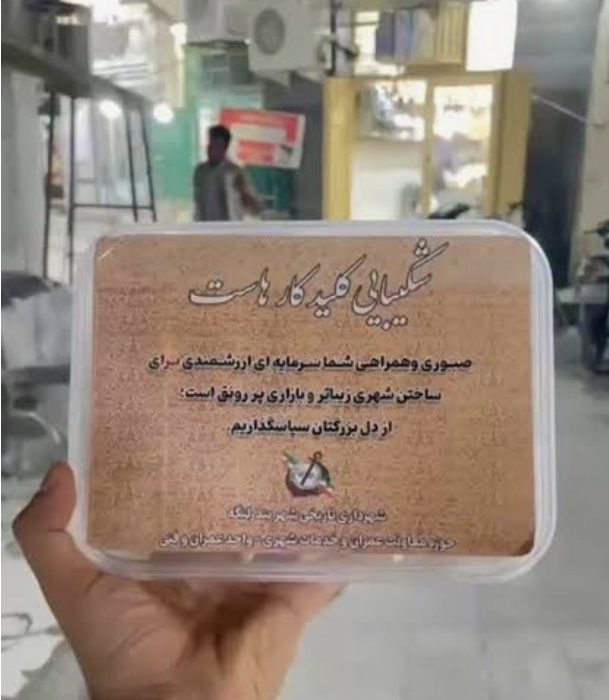 شکیبایی کلید کار هاست
صبوری وهمراهی شما سرمایه ای ارزشمندی برای
ساختن شهری زیباتر و بازاری پر رونق است؛
از دل بزرگتان سپاسگذاریم.
شهرداری تاریخی شهر بندرلنگه
حوزه معاونت عمران و خدمات شهری - واحد عمران و فنی